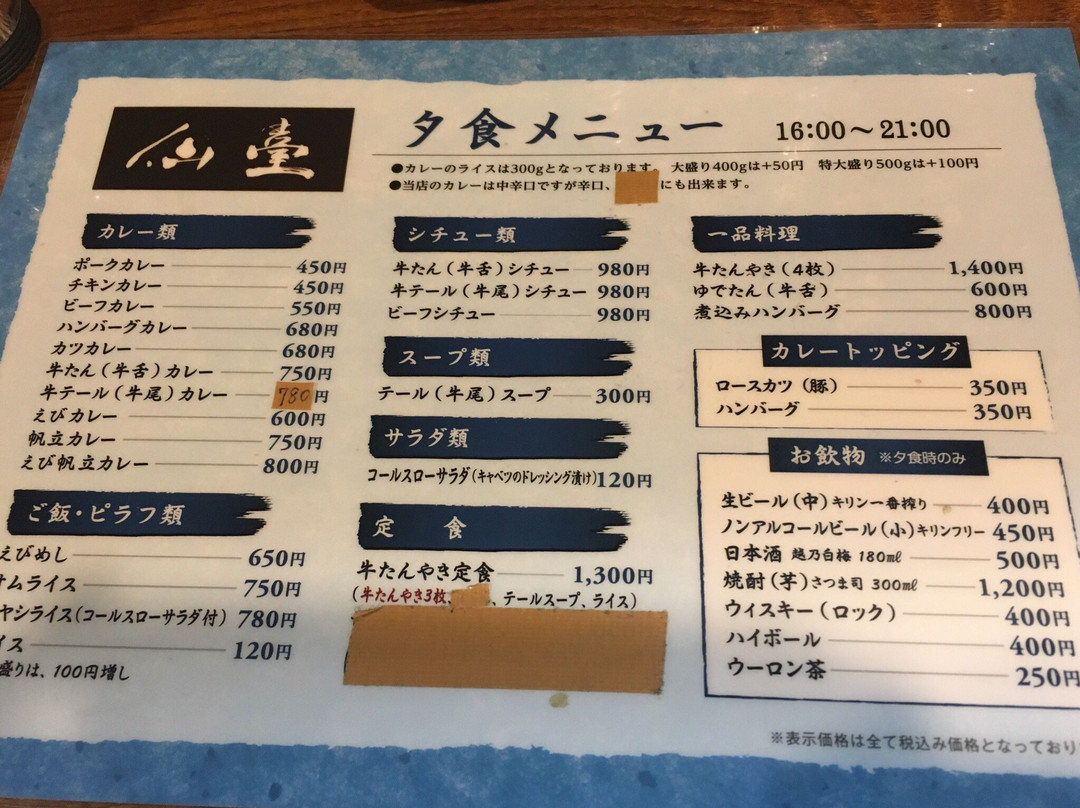 仙臺
夕食メニュー 16:00～21:00
●カレーのライスは300gとなっております。 大盛り400gは+50円 特大盛り500gは+100円
●当店のカレーは中辛口ですが辛口、 にも出来ます。
カレー類
ポークカレー 450円
チキンカレー 450円
ビーフカレー 550円
ハンバーグカレー 680円
カツカレー 680円
牛たん(牛舌)カレー 750円
牛テール(牛尾)カレー 780円
えびカレー 600円
帆立カレー 750円
えび帆立カレー 800円
ご飯・ピラフ類
えびめし 650円
ムライス 750円
ヤシライス(コールスローサラダ付) 780円
イス 120円
盛りは、100円増し
シチュー類
牛たん(牛舌)シチュー 980円
牛テール(牛尾)シチュー 980円
ビーフシチュー 980円
スープ類
テール(牛尾)スープ 300円
サラダ類
コールスローサラダ(キャベツのドレッシング漬け) 120円
定食
牛たんやき定食 1,300円
(牛たんやき3枚、 、テールスープ、ライス)
一品料理
牛たんやき(4枚) 1,400円
ゆでたん(牛舌) 600円
煮込みハンバーグ 800円
カレートッピング
ロースカツ(豚) 350円
ハンバーグ 350円
お飲物 ※夕食時のみ
生ビール(中)キリン一番搾り 400円
ノンアルコールビール(小)キリンフリー 450円
日本酒 越乃白梅 180㎖ 500円
焼酎(芋)さつま司 300㎖ 1,200円
ウィスキー(ロック) 400円
ハイボール 400円
ウーロン茶 250円
※表示価格は全て税込み価格となっており